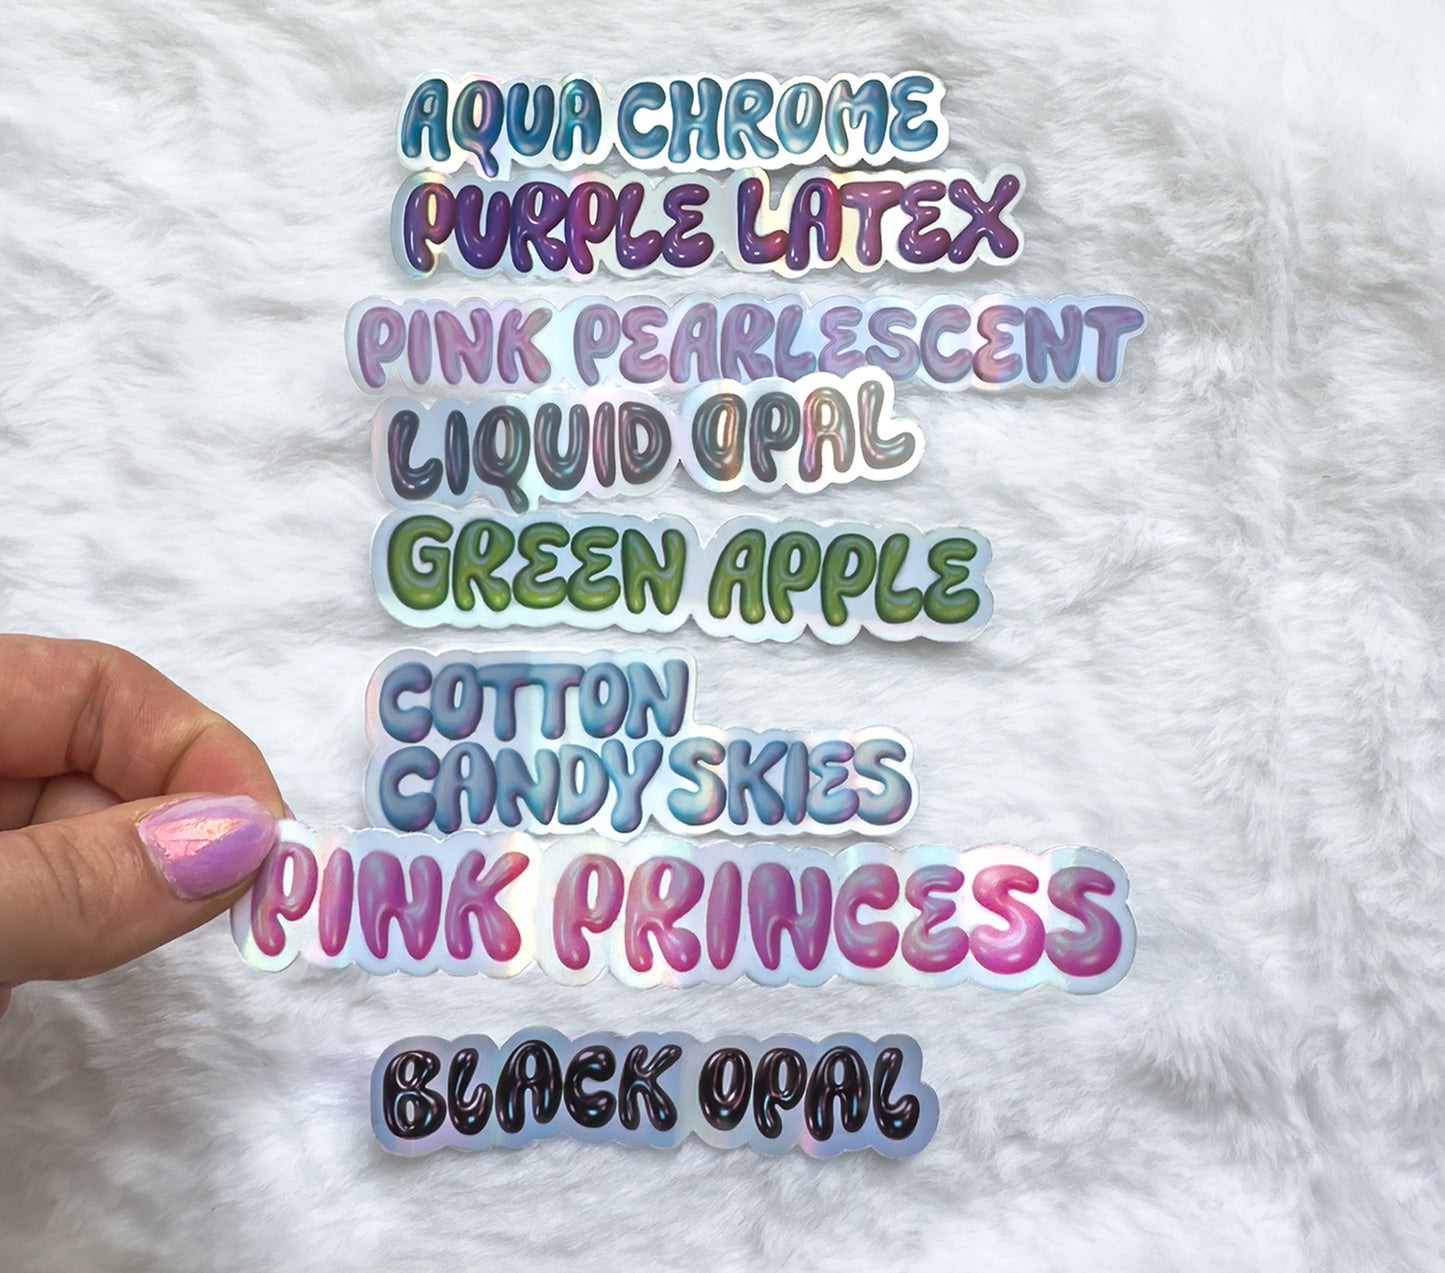 AQUA CHROME
PURPLE LATEX
PINK PEARLESCENT
LIQUID OPAL
GREEN APPLE
COTTON
CANDY SKIES
PINK PRINCESS
BLACK OPAL